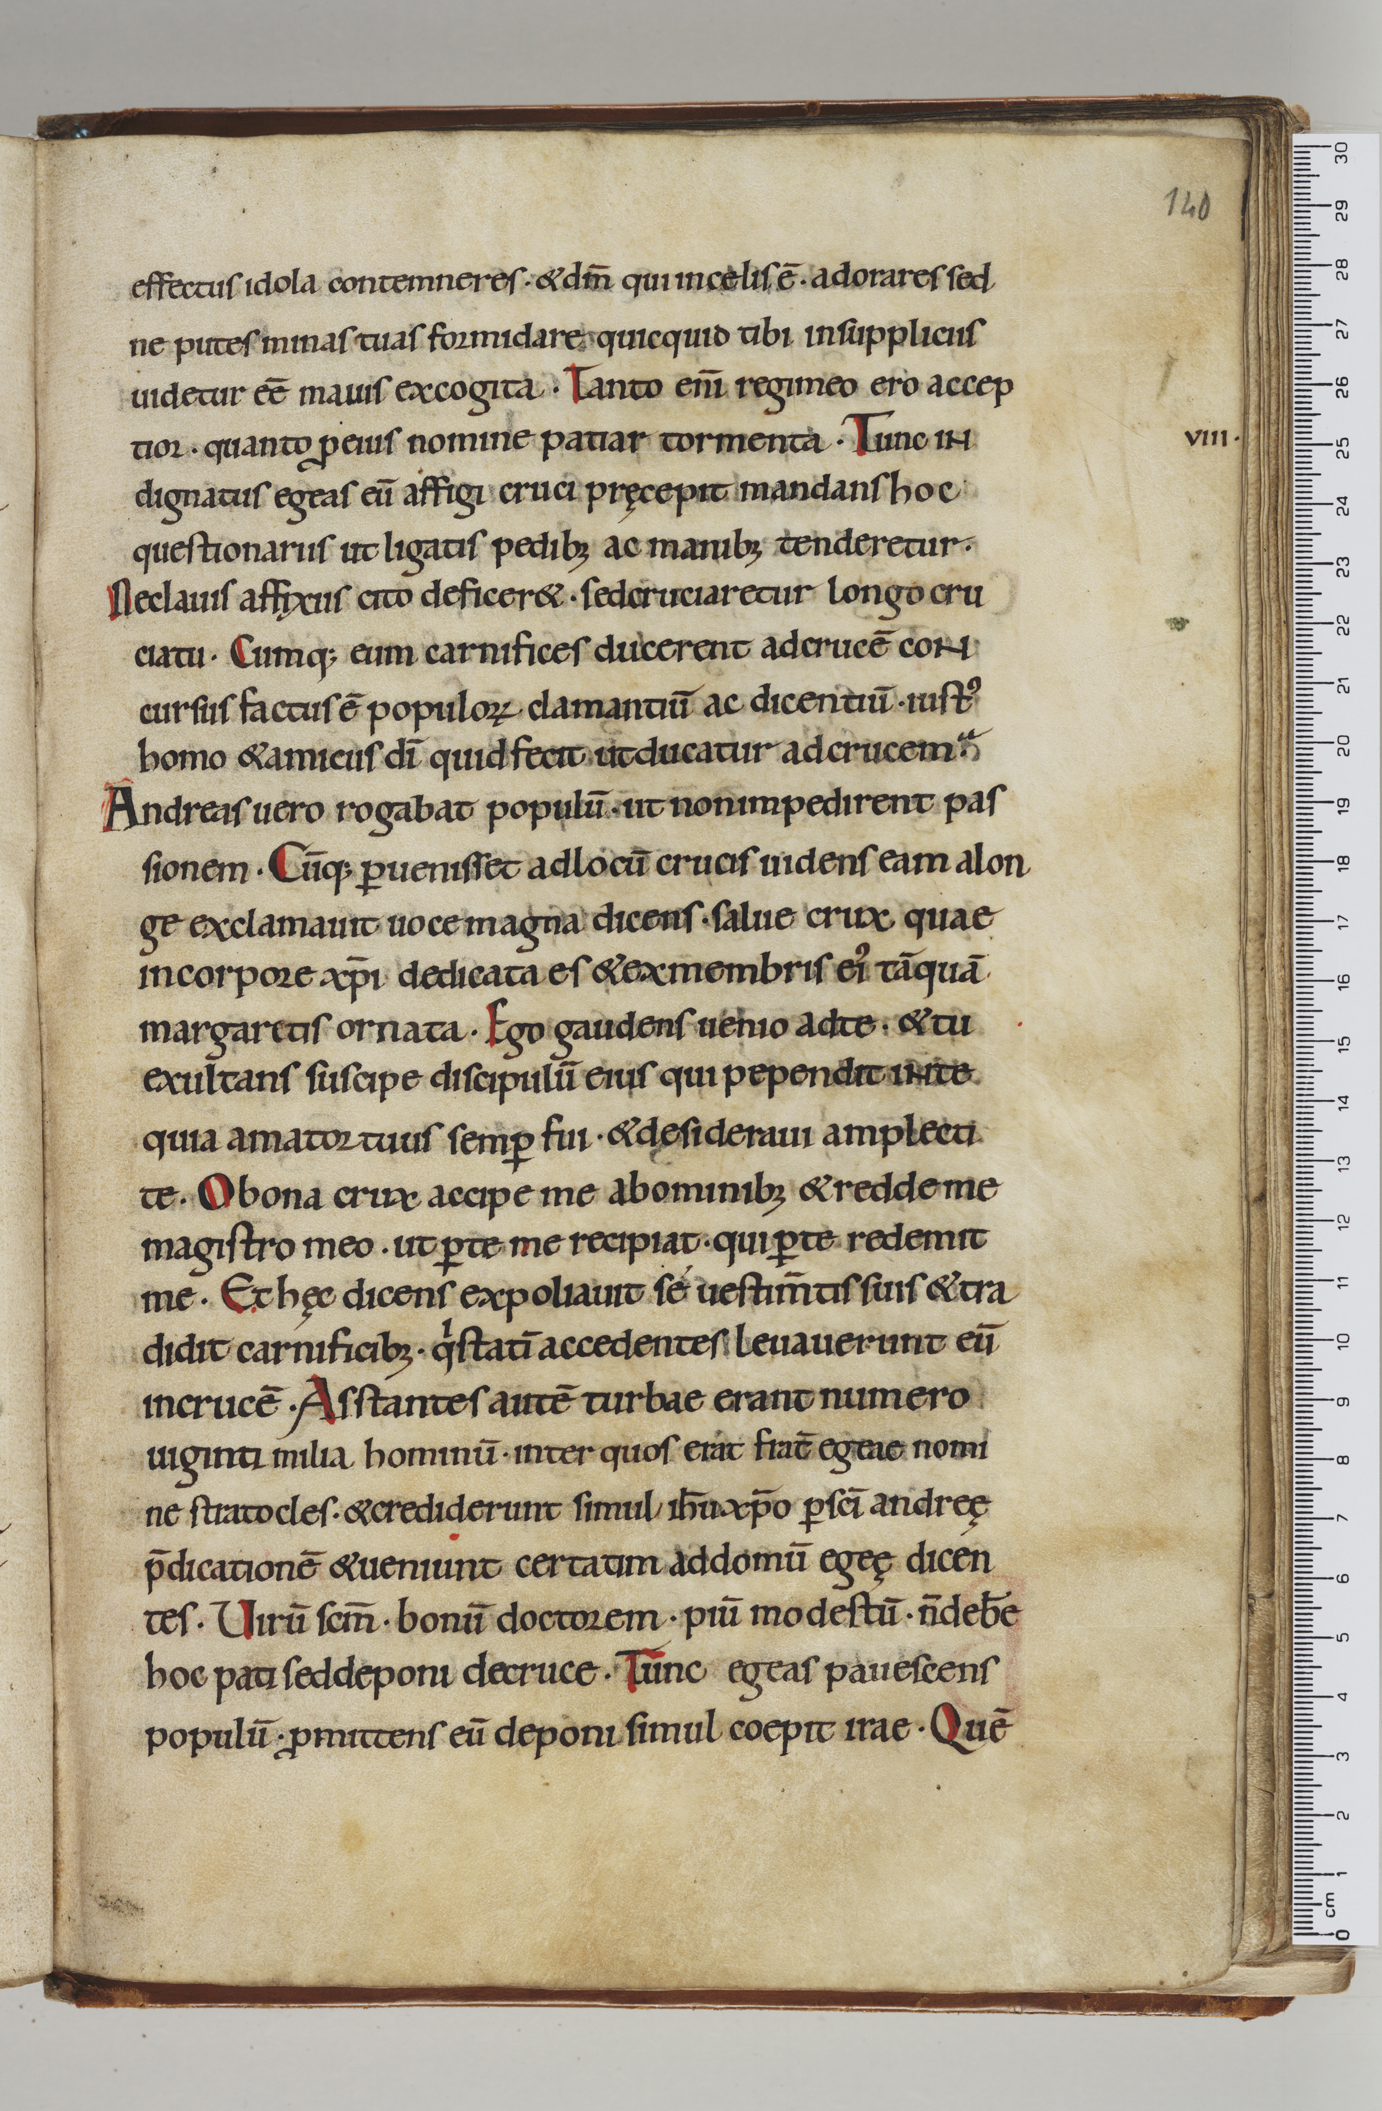 140
effectus idola contemneres · & dm̄ qui in celis ē · adorares sed
ne putes minas tuas formidare quicquid tibi in suppliciis
uidetur eē mauis excogita · Tanto eni̅ regi meo ero accep
tior · quanto ꝓ eius nomine patiar tormenta · Tunc in
viii ·
dignatus egeas eū affigi cruci pręcepit mandans hoc
questionariis ut ligatis pedibꝫ ac manibꝫ tenderetur ·
Ne clauis affixus cito deficer& · sed cruciaretur longo cru
ciatu · Cumq; eum carnifices ducerent ad crucē con
cursus factus ē populoꝝ clamantiū ac dicentiū · iustꝰ
homo & amicus di̅ quid fecit ut ducatur ad crucem
Andreas uero rogabat populū · ut non impedirent pas
sionem · Cūq; ꝑuenisset ad locū crucis uidens eam a lon
ge exclamauit uoce magna dicens · salue crux quae
in corpore xp̄i dedicata es & ex membris eiꝰ tāquā
margaretis ornata · Ego gaudens uenio ad te · & tu
exultans suscipe discipulū eius qui pependit in te
quia amator tuus semꝑ fui · & desideraui amplecti
te · O bona crux accipe me ab ominibꝫ & redde me
magistro meo · ut ꝑ te me recipiat · qui ꝑ te redemit
me · Et hęc dicens expoliauit sé uestim̄tis suis & tra
didit carnificibꝫ · qͥ stati̅ accedentes leuauerunt eū
in crucē · Asstantes autē turbae erant numero
uiginti milia hominū · inter quos erat frat̄ egeae nomi
ne stratocles · & crediderunt simul ih̄u xp̄o ꝑ sc̄i andreę
p̄dicationē & ueniunt certatim ad domū egeę dicen
tes · Uirū scm̄ · bonū doctorem · piū modestū · n̄ deb̄e
hoc pati sed deponi de cruce · Tunc egeas pauescens
populū · ꝓmittens eū deponi simul coepit irae · Quē